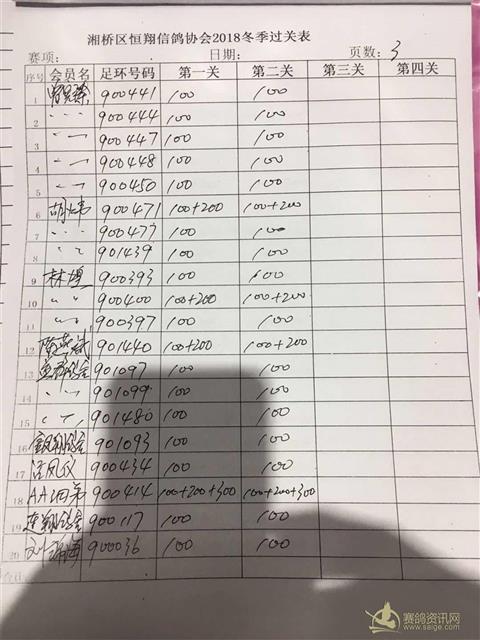 湘桥区恒翔信鸽协会2018冬季过关表
赛项: 日期: 页数: 3
序号 会员名 足环号码 第一关 第二关 第三关 第四关
1 900441 100 100
2 900444 100 100
3 900447 100 100
4 900448 100 100
5 900450 100 100
6 900471 100+200 100+200
7 900477 100 100
8 〃 901439 100 100
9 900393 100 100
10 〃 900400 100+200 100+200
11 900397 100 100
12 901440 100+200 100+200
13 901097 100 100
14 901099 100 100
15 901480 100 100
16 901093 100 100
17 900434 100 100
18 AA 900414 100+200+300 100+200+300
19 900117 100 100
20 900036 100 100
合计
赛鸽资讯网
www.saige.com